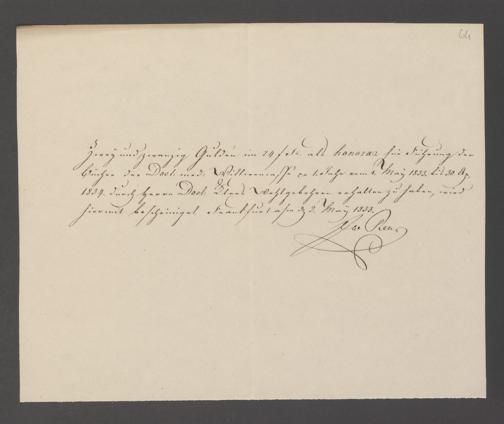 64
Zwey und zwanzig Gulden im 24 f als honorar für Führung der
Bücher der Doct. med. Wittwencasse 1 Jahr vom 1 May 1833. bis 30 Ap.
1834. durch Herrn Doct. Wohlgebohren erhalten zu haben, wird
hiermit bescheiniget Frankfurt a/m d 2. May 1833.